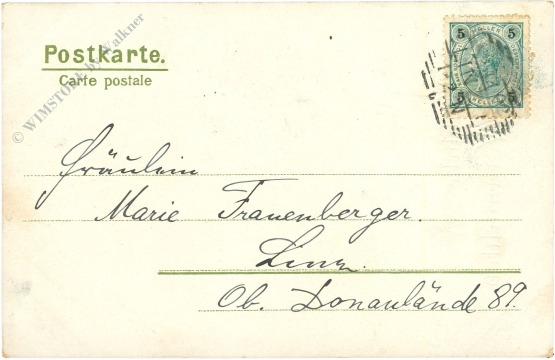 Postkarte.
Carte postale
© WIMSTORE by Walkner
5 5
5 5
Fräulein
Marie Frauenberger.
Linz.
Ob. Donaulände 89.